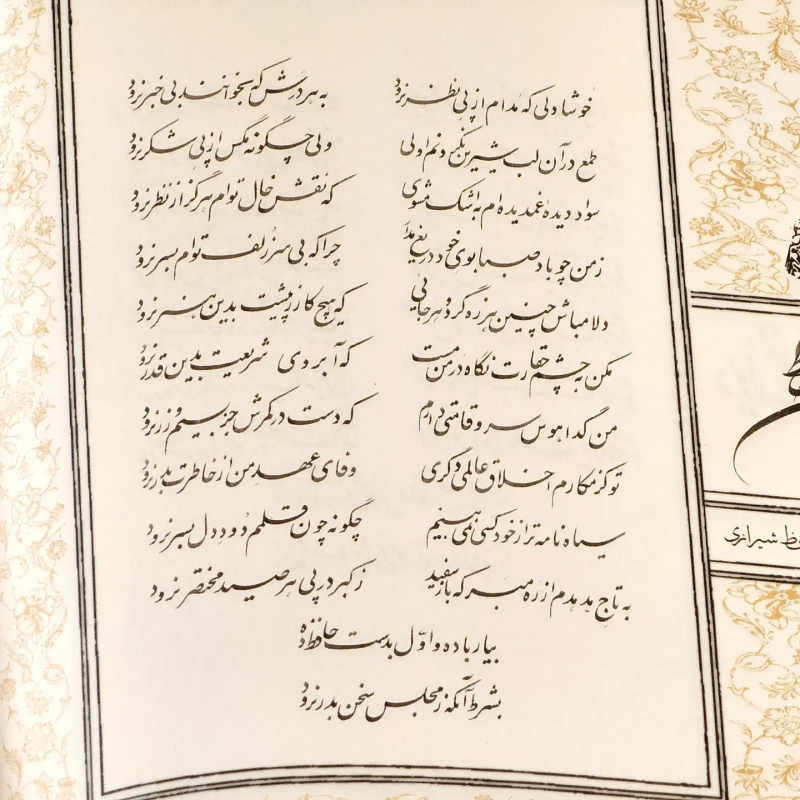 خوشا دلی که مدام از پی نظر نرود به هر درش که بخوانند بی خبر نرود
طمع در آن لب شیرین نکردنم اولی ولی چگونه مگس از پی شکر نرود
سواد دیده غمدیده ام به اشک مشوی که نقش خال توام هرگز از نظر نرود
ز من چو باد صبا بوی خود دریغ مدار چرا که بی سر زلف توام بسر نرود
دلا مباش چنین هرزه گرد و هرجایی که هیچ کار ز پیشت بدین هنر نرود
مکن به چشم حقارت نگاه در من مست که آبروی شریعت بدین قدر نرود
من گدا هوس سرو قامتی دارم که دست در کمرش جز بسیم و زر نرود
تو کز مکارم اخلاق عالمی دگری وفای عهد من از خاطرت بدر نرود
سیاه نامه تر از خود کسی نمی بینم چگونه چون قلمم دود دل بسر نرود
به تاج هدهدم از ره مبر که باز سفید ز کبر در پی هر صید مختصر نرود
بیار باده و اول بدست حافظ ده
بشرط آنکه ز مجلس سخن بدر نرود
شیرازی